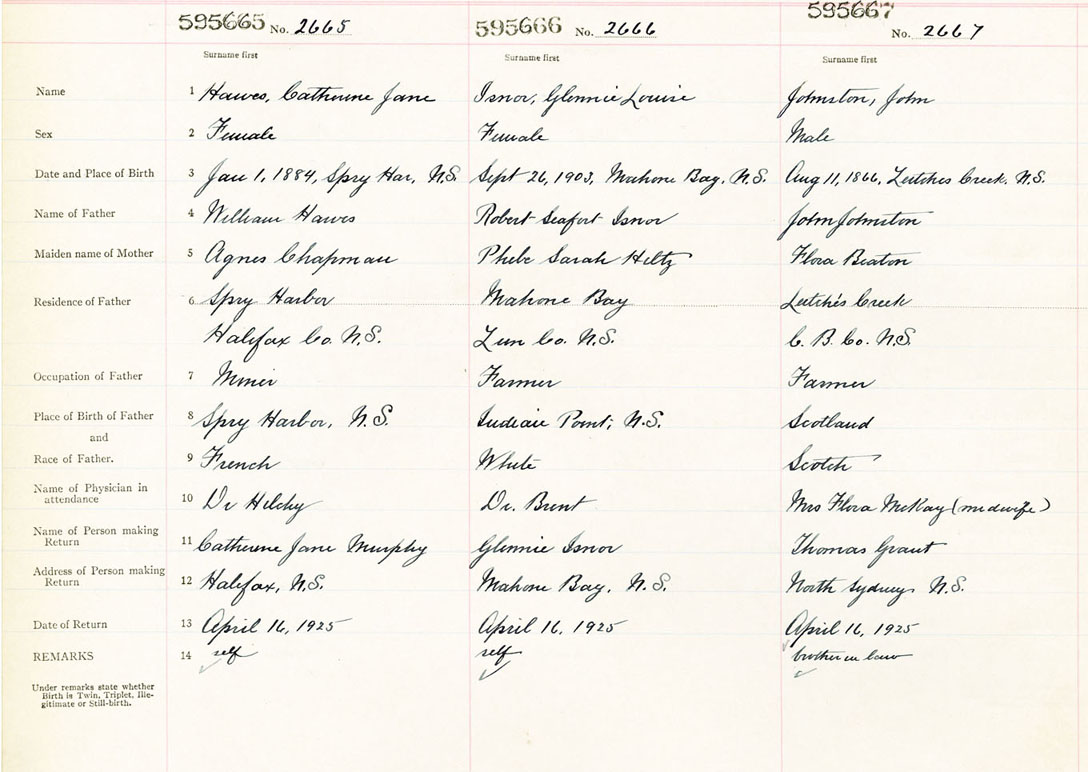 595665 No. 2665 595666 No. 2666 595667 No. 2667
Surname first Surname first Surname first
Name 1 Hawes, Catherine Jane Isnor, Glennie Louise Johnston, John
Sex 2 Female Female Male
Date and Place of Birth 3 Jan 1, 1884, Spry Har, N.S. Sept 26, 1903, Mahone Bay, N.S. Aug 11, 1866, Leitches Creek, N.S.
Name of Father 4 William Hawes Robert Seafort Isnor John Johnston
Maiden name of Mother 5 Agnes Chapman Phebe Sarah Hiltz Flora Beaton
Residence of Father 6 Spry Harbor Mahone Bay Leitches Creek
Halifax Co. N.S. Lun Co. N.S. C. B. Co. N.S.
Occupation of Father 7 Miner Farmer Farmer
Place of Birth of Father 8 Spry Harbor, N.S. Indian Point, N.S. Scotland
and
Race of Father. 9 French White Scotch
Name of Physician in
attendance 10 Dr Dr. Brent Mrs Flora McKay (midwife)
Name of Person making
Return 11 Catherine Jane Murphy Glennie Isnor Thomas Grant
Address of Person making
Return 12 Halifax, N.S. Mahone Bay, N.S. North Sydney N.S.
Date of Return 13 April 16, 1925 April 16, 1925 April 16, 1925
REMARKS 14 self self brother in law
Under remarks state whether
Birth is Twin, Triplet, Ille-
gitimate or Still-birth.